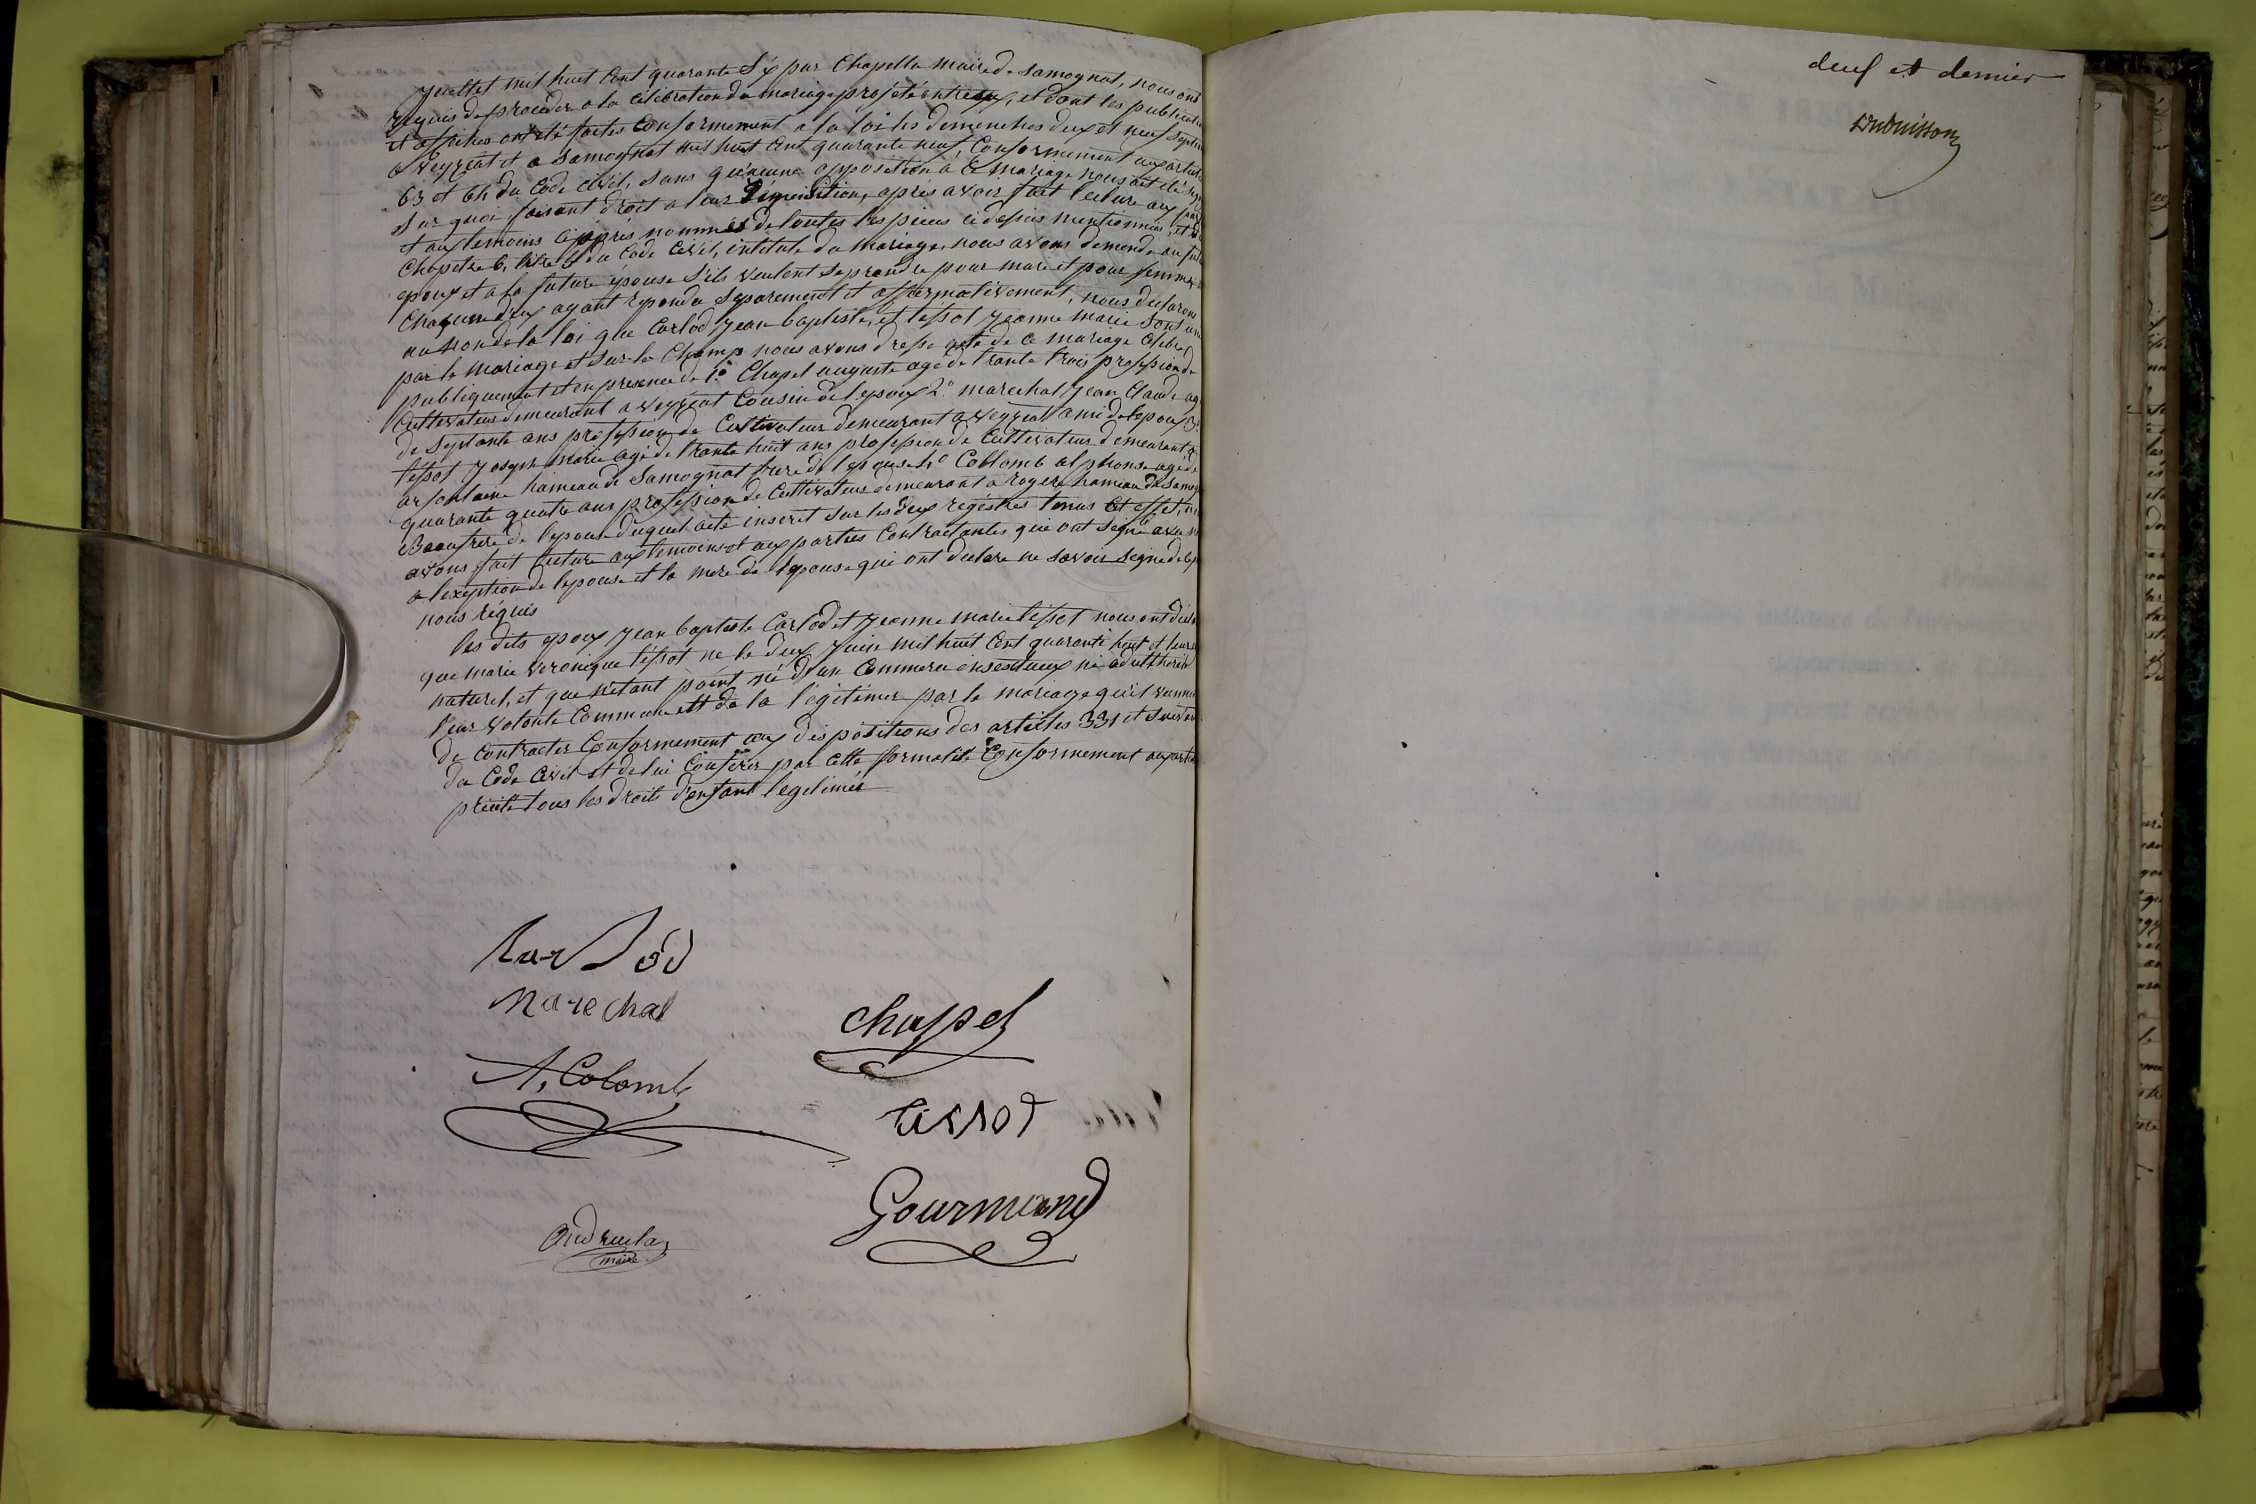 juillet mil huit cent quarante six par Chapelle maire de samognat, nous ont
requis de proceder a la célébration du mariage projeté entre eux, et dont les publication
et affiches ont été faites conformement a la loi les dimenches deux et neuf septem
a veyziat et a samognat mil huit cent quarante neuf, Conformement aux articles
63 et 64 du Code civil, sans qu'aucune opposition à ce mariage nous ait été
Sur quoi faisant droit a leur Réquisition, après avoir fait lecture aux par
et aux temoins ci après nommés de toutes les pieces ci dessus mentionnées, et
Chapitre 6, titre 5 du Code Civil, intitulé du Mariage, nous avons demendé au futur
epoux et a la future épouse s'ils veulent se prendre pour mari et pour femme
Chaqune d'eux ayant répondu séparement et affirmativement, nous declarons
au nom de la loi que Carlod Jean baptiste, et tissot Jeanne marie sont unis
par le mariage et sur le Champ nous avons dressé acte de ce mariage Célébré
publiquement et en presence de 1.º Chapel auguste agé de trante trois profession de
Cultivateur demeurant a veyziat Cousin de l'epoux 2.º marechal Jean Claude agé
de septante ans profession de Cultivateur demeurant a veyziat ami de l'epoux 3.º
tissot Joseph marie agé de trante huit ans profession de Cultivateur demeurant
arfontaine hameau de Samognat frere de l'epouse 4.º Collomb alphonse agé de
quarante quatre ans profession de Cultivateur demeurant a royere hameau de samognat
Beaufrere de l'epouse duquel acte inscrit sur les deux régistres tenus
avons fait lecture aux temoins et aux parties Contractantes qui ont signé avec nous
a l'exeption de l'epouse et la mere de l'epouse qui ont déclaré ne savoir signé de
nous réquis
les dits epoux Jean baptiste Carlod et Jeanne marie tissot nous ont déclaré
que marie veronique tissot né le deux Juin mil huit Cent quarante huit est leur
naturel, et que n'étant point né d'un Commerce insestueux ni adultherin
leur volonté Commune est de la légitimer par le mariage qu'il viennent
de contracter Conformement aux dispositions des articles 331 et suivant
du Code Civil et de lui Conferer par cette formalité Conformement aux articles
précité tous les droits d'enfant legitimés
Carlod
Marechal
chapel
A, Colomb
tissot
Gourmand
maire
deuf et dernier
Dubuisson